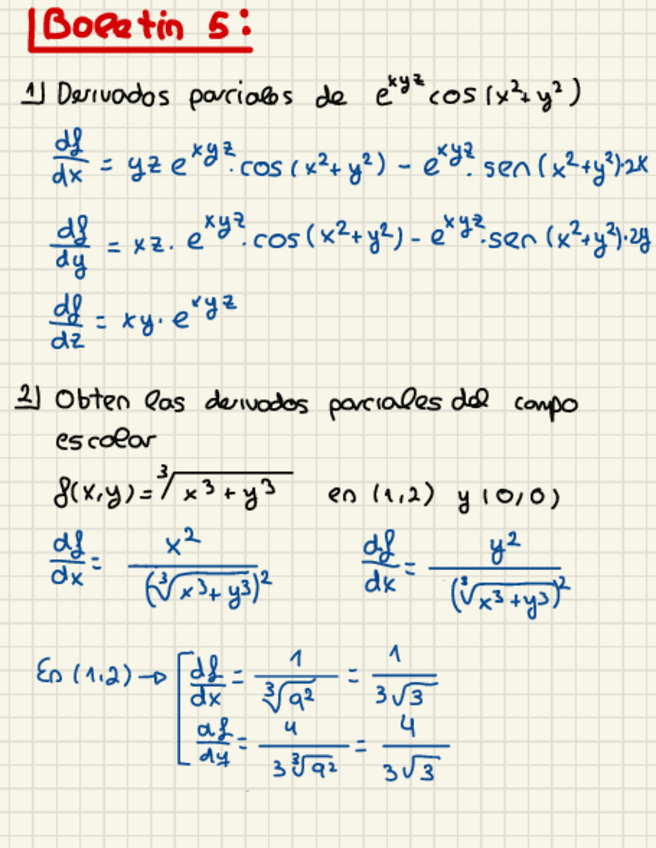 Boletin 5:
1) Derivadas parciales de e^xyz cos(x²+y²)
df/dx = yz e^xyz · cos(x²+y²) - e^xyz · sen(x²+y²)·2x
df/dy = xz · e^xyz · cos(x²+y²) - e^xyz · sen(x²+y²)·2y
df/dz = xy · e^xyz
2) Obten las derivadas parciales del campo
escolar
f(x,y) = ³√(x³+y³) en (1,2) y (0,0)
df/dx = x²/(³√(x³+y³))² df/dx = y²/(³√(x³+y³))²
En (1,2) → [ df/dx = 1/³√9² = 1/3√3
df/dy = 4/3³√9² = 4/3√3